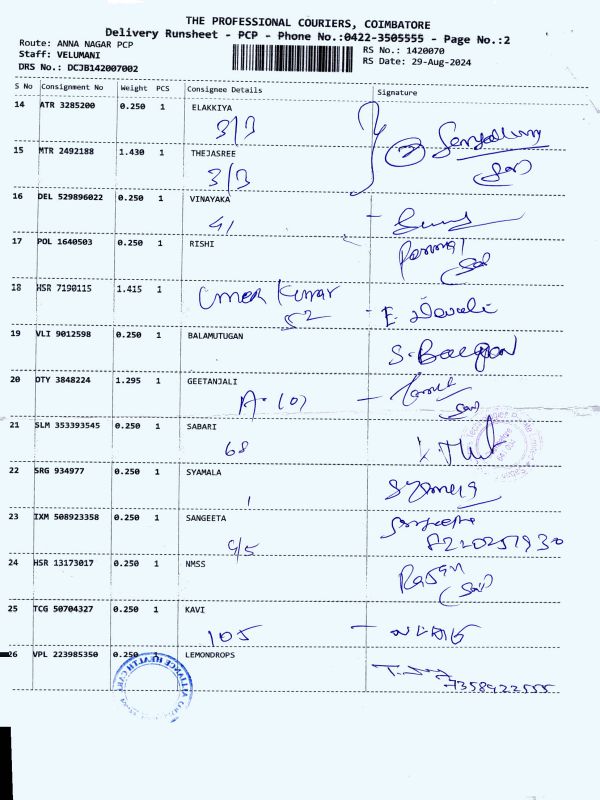 THE PROFESSIONAL COURIERS, COIMBATORE
Delivery Runsheet - PCP - Phone No.:0422-3505555 - Page No.:2
Route: ANNA NAGAR PCP
Staff: VELUMANI
DRS No.: DCJB142007002
RS No.: 1420070
RS Date: 29-Aug-2024
S No Consignment No Weight PCS Consignee Details Signature
14 ATR 3285200 0.250 1 ELAKKIYA
3/3
15 MTR 2492188 1.430 1 THEJASREE
3/3
16 DEL 529896022 0.250 1 VINAYAKA
41
17 POL 1640503 0.250 1 RISHI
18 HSR 7190115 1.415 1
Kumar
52
19 VLI 9012598 0.250 1 BALAMUTUGAN
20 DTY 3848224 1.295 1 GEETANJALI
A-107
21 SLM 353393545 0.250 1 SABARI
68
22 SRG 934977 0.250 1 SYAMALA
1
23 IXM 508923358 0.250 1 SANGEETA
9/5
8220257930
24 HSR 13173017 0.250 1 NMSS
25 TCG 50704327 0.250 1 KAVI
105
26 VPL 223985350 0.250 1 LEMONDROPS
7358922555